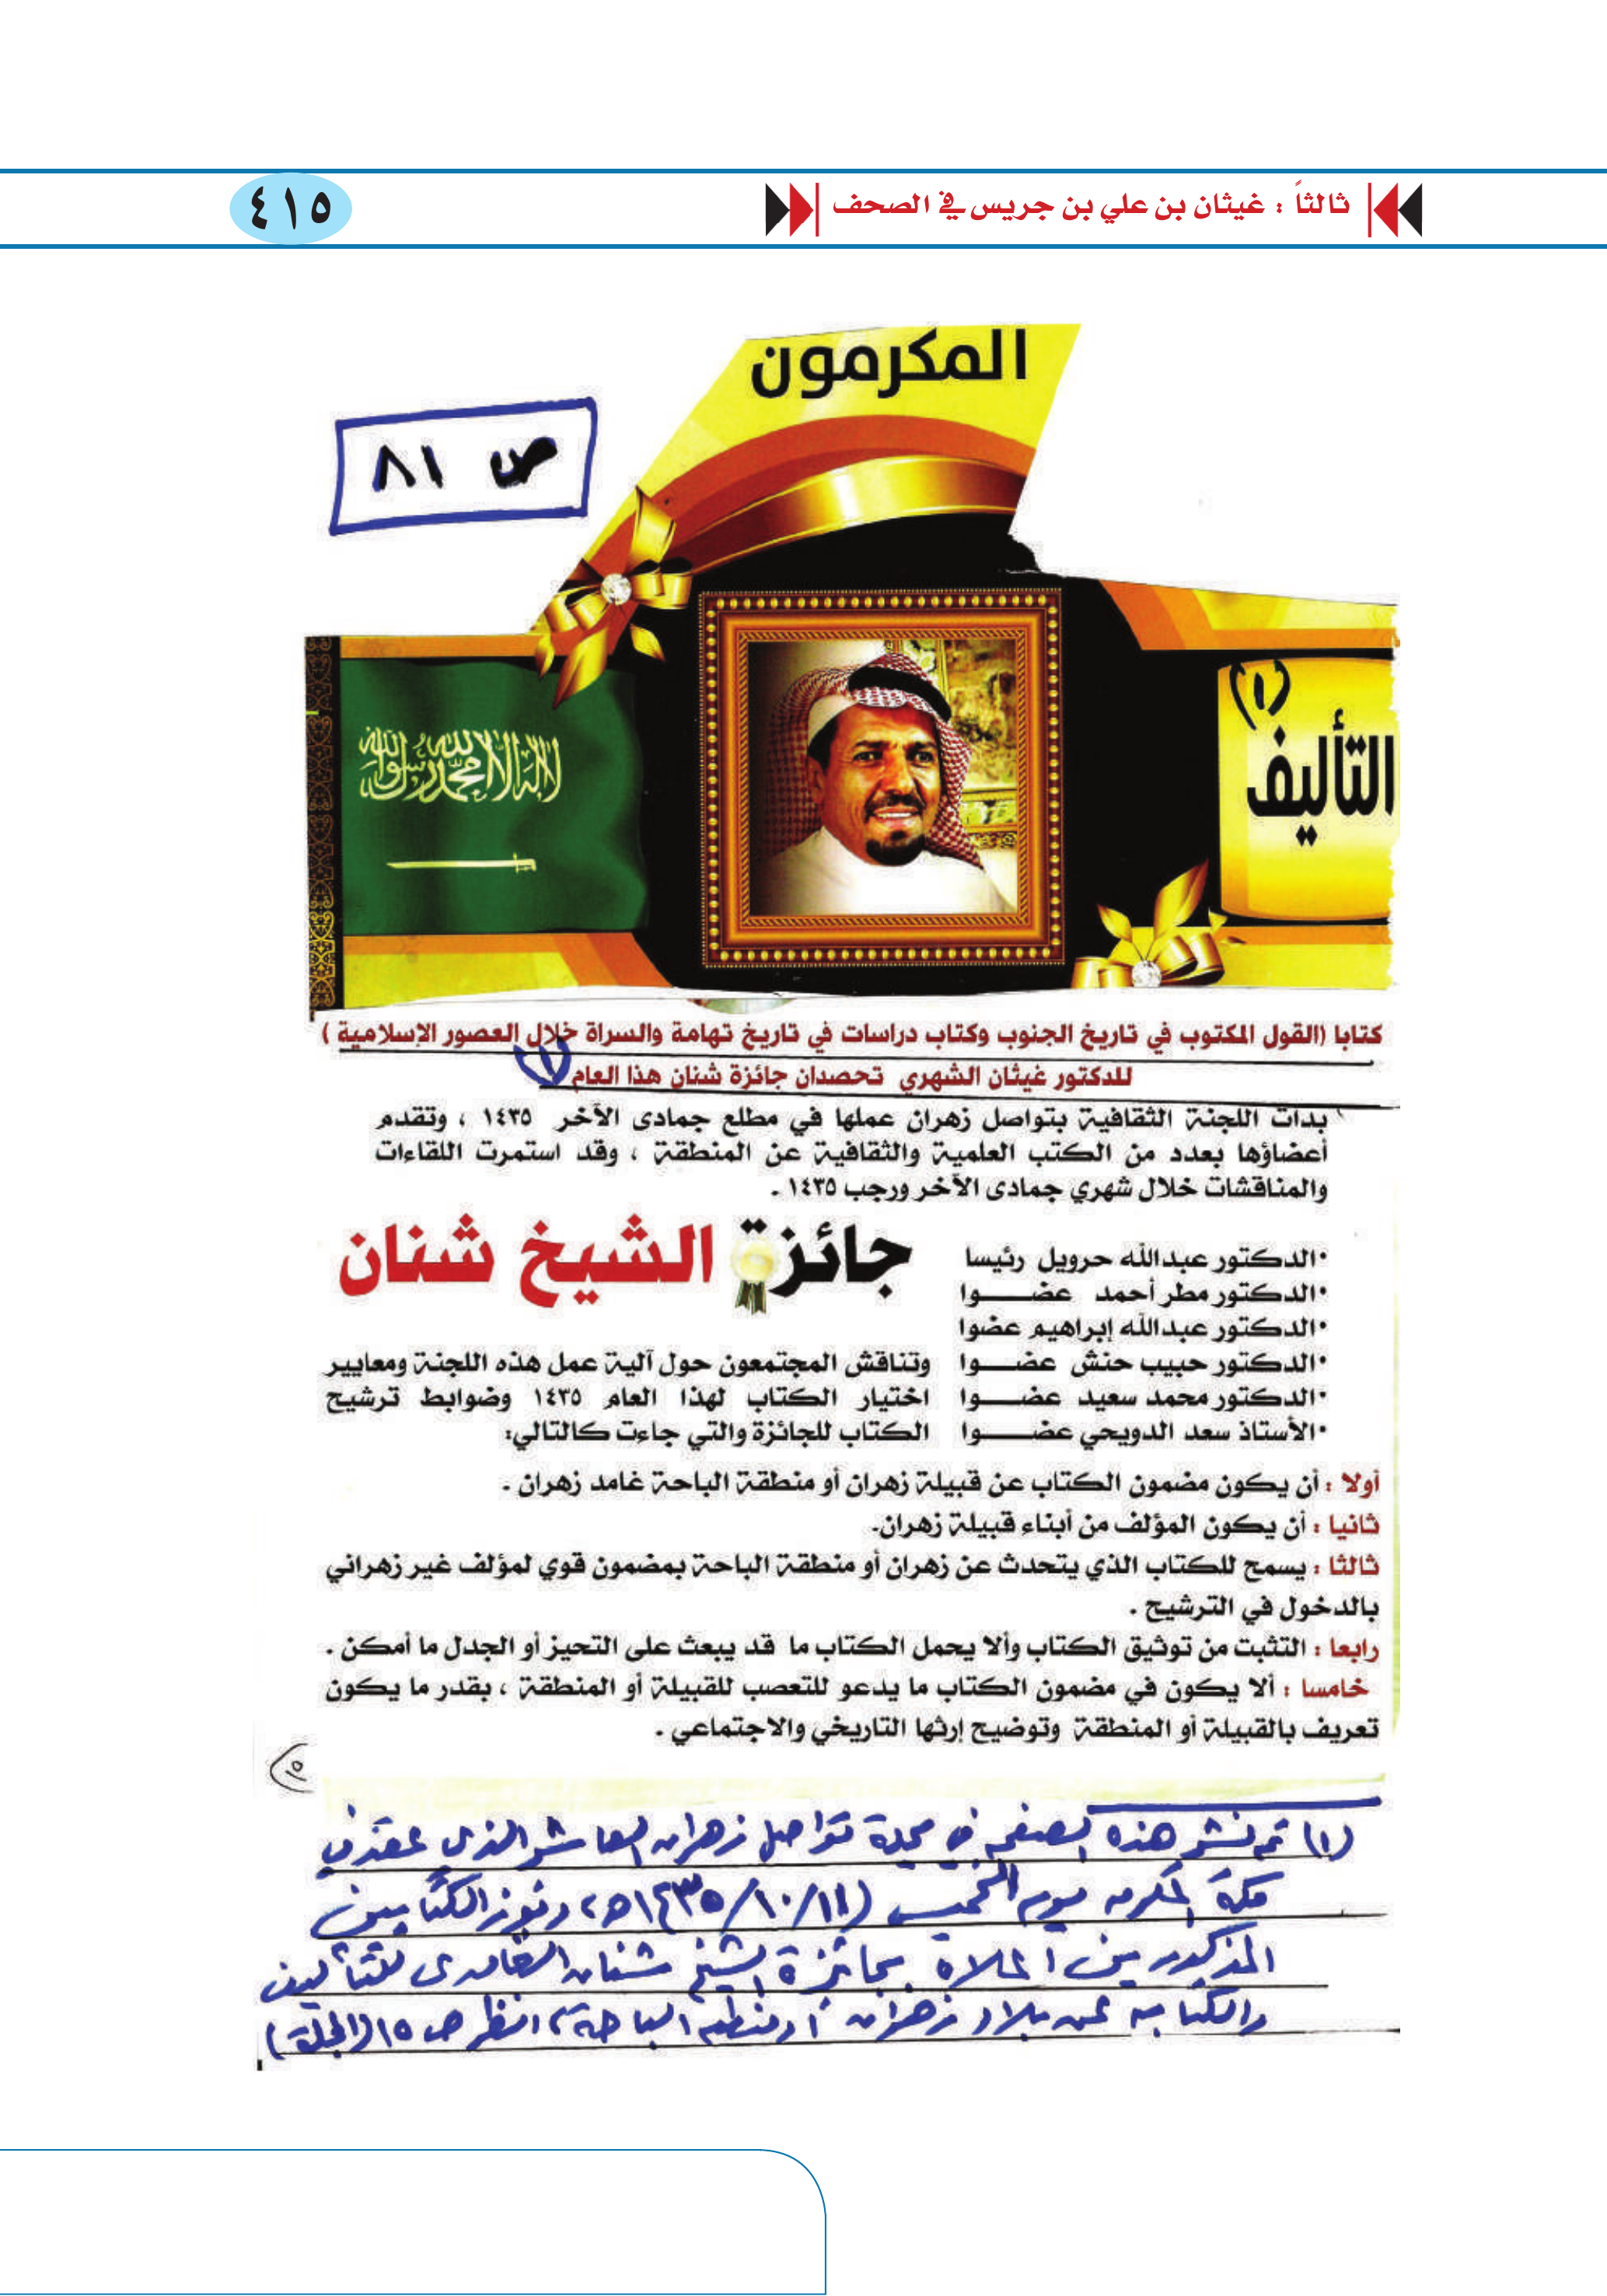 ثالثاً : غيثان بن علي بن جريس في الصحف
٤١٥
المكرمون
ص ٨١
(١)
التأليف
لا إله إلا الله محمد رسول الله
كتابا (القول المكتوب في تاريخ الجنوب وكتاب دراسات في تاريخ تهامة والسراة خلال العصور الإسلامية )
للدكتور غيثان الشهري تحصدان جائزة شنان هذا العام (١)
بدأت اللجنة الثقافية بتواصل زهران عملها في مطلع جمادى الآخر ١٤٣٥ ، وتقدم
أعضاؤها بعدد من الكتب العلمية والثقافية عن المنطقة ، وقد استمرت اللقاءات
والمناقشات خلال شهري جمادى الآخر ورجب ١٤٣٥ .
جائزة الشيخ شنان
•الدكتور عبدالله حرويل رئيسا
•الدكتور مطر أحمد عضـــوا
•الدكتور عبدالله إبراهيم عضوا
•الدكتور حبيب حنش عضـــوا
•الدكتور محمد سعيد عضـــوا
•الأستاذ سعد الدويحي عضـــوا
وتناقش المجتمعون حول آلية عمل هذه اللجنة ومعايير
اختيار الكتاب لهذا العام ١٤٣٥ وضوابط ترشيح
الكتاب للجائزة والتي جاءت كالتالي:
أولا : أن يكون مضمون الكتاب عن قبيلة زهران أو منطقة الباحة غامد زهران .
ثانيا : أن يكون المؤلف من أبناء قبيلة زهران.
ثالثا : يسمح للكتاب الذي يتحدث عن زهران أو منطقة الباحة بمضمون قوي لمؤلف غير زهراني
بالدخول في الترشيح .
رابعا : التثبت من توثيق الكتاب وألا يحمل الكتاب ما قد يبعث على التحيز أو الجدل ما أمكن .
خامسا : ألا يكون في مضمون الكتاب ما يدعو للتعصب للقبيلة أو المنطقة ، بقدر ما يكون
تعريف بالقبيلة أو المنطقة وتوضيح إرثها التاريخي والاجتماعي .
(١) تم نشر هذه الصفحة في مجلة تواصل زهران العاشر الذي عقد في
مكة المكرمة يوم الخميس (١١/١٠/١٤٣٥هـ) وفوز الكتابين
المذكورين أعلاه بجائزة الشيخ شنان الغامدي للتأليف
والكتابة عن بلاد زهران أو منطقة الباحة، انظر ص ١٥ (المجلة)